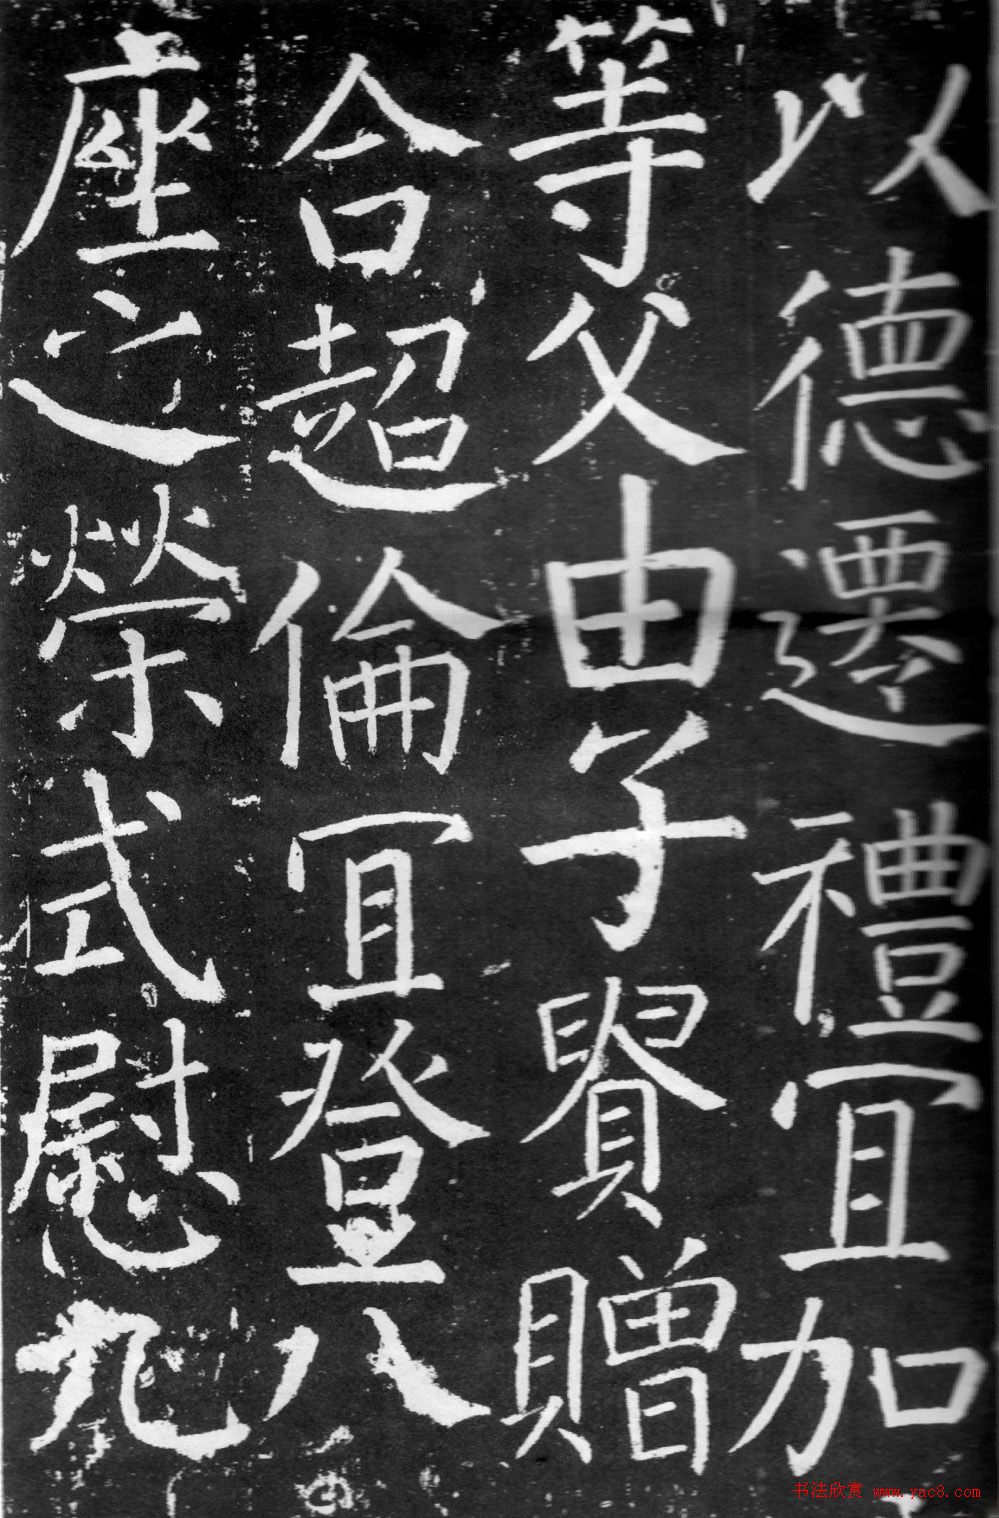 以德遷禮宜加
等父由子貴贈
合超倫宜登八
座之榮式慰九
书法欣赏 www.yac8.com